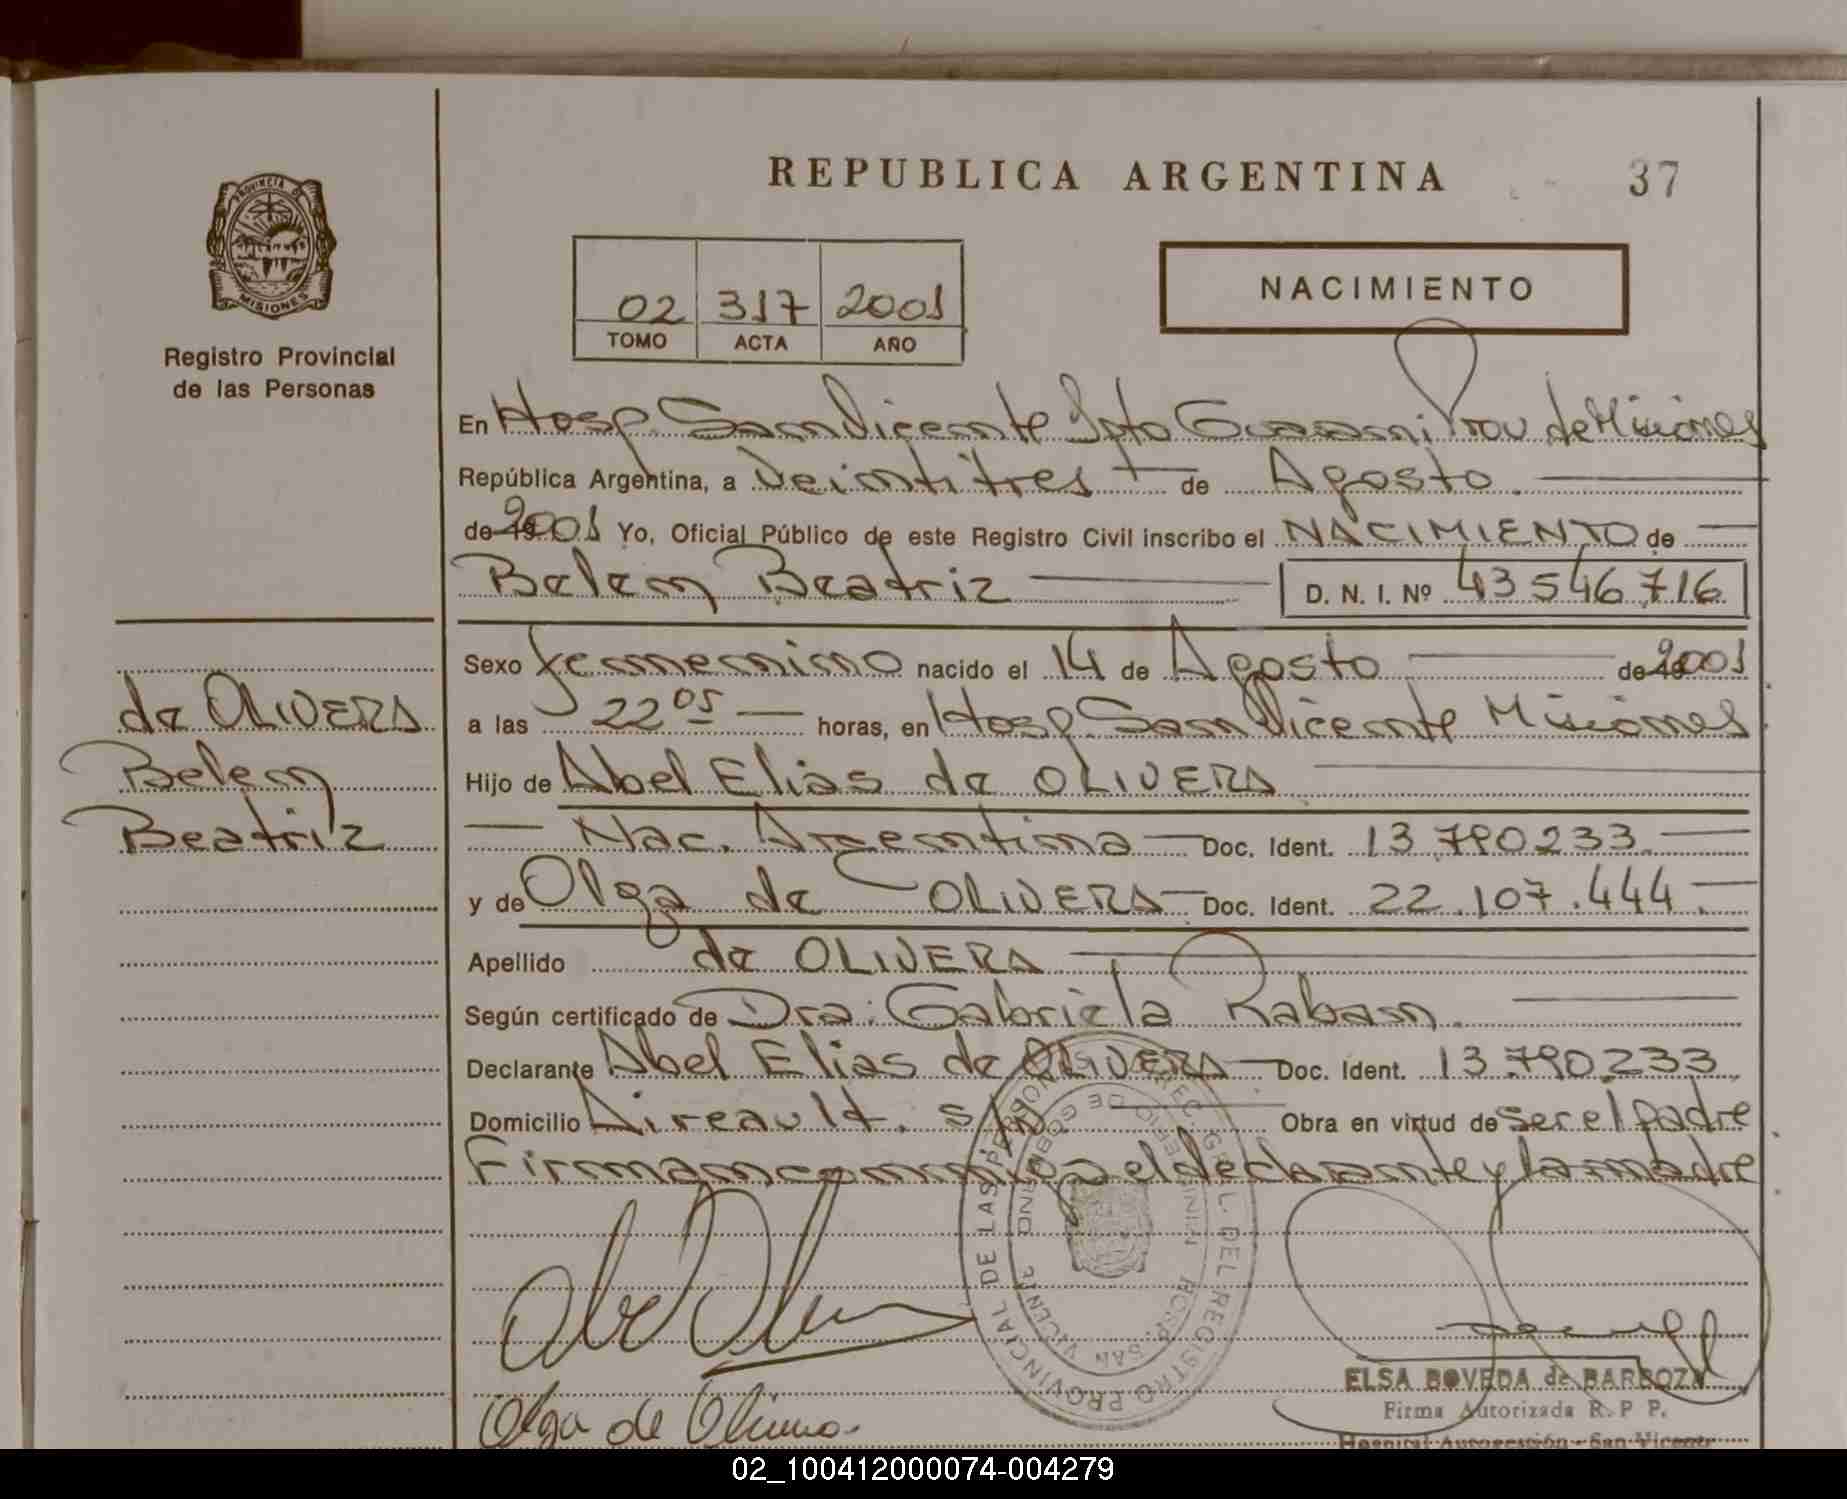 REPUBLICA ARGENTINA
37
PROVINCIA DE
MISIONES
Registro Provincial
de las Personas
02 317 2001
TOMO ACTA AÑO
NACIMIENTO
En Hosp. San Vicente Dpto Guarani Prov de Misiones
República Argentina, a Veintitres de Agosto
de 2001 Yo, Oficial Público de este Registro Civil inscribo el NACIMIENTO de
Belen Beatriz D. N. I. Nº 43546716
de OLIVERA
Belen
Beatriz
Sexo femenino nacido el 14 de Agosto de 2001
a las 22 05 horas, en Hosp. San Vicente Misiones
Hijo de Abel Elias de OLIVERA
Nac. Argentina Doc. Ident. 13.790.233
y de Olga de OLIVERA Doc. Ident. 22.107.444
Apellido de OLIVERA
Según certificado de Dra. Gabriela Raban
Declarante Abel Elias de OLIVERA Doc. Ident. 13.790.233
Domicilio s/n Obra en virtud de ser el padre
Firman conmigo el declarante y la madre
REGISTRO PROVINCIAL DE LAS PERSONAS
HOSP. SAN VICENTE
Olga de Olivera
ELSA BOVEDA de BARBOZA
Firma Autorizada R. P. P.
Hospital Autogestión - San Vicente
02_100412000074-004279